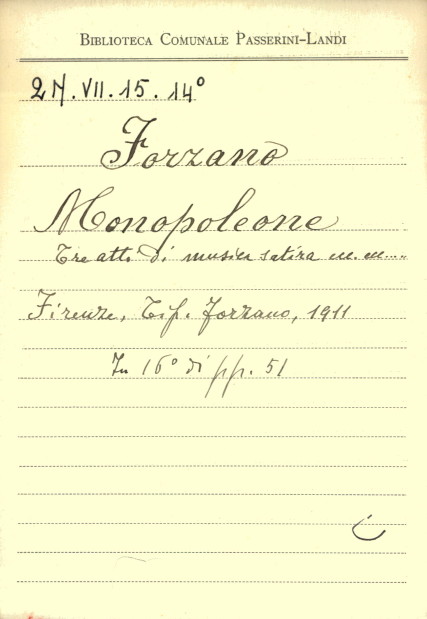 BIBLIOTECA COMUNALE PASSERINI-LANDI
2M.VII.15.14°
Forzano
Monopoleone
Tre atti di musica satira m. m.....
Firenze, Tip. Forzano, 1911
In 16° di pp. 51